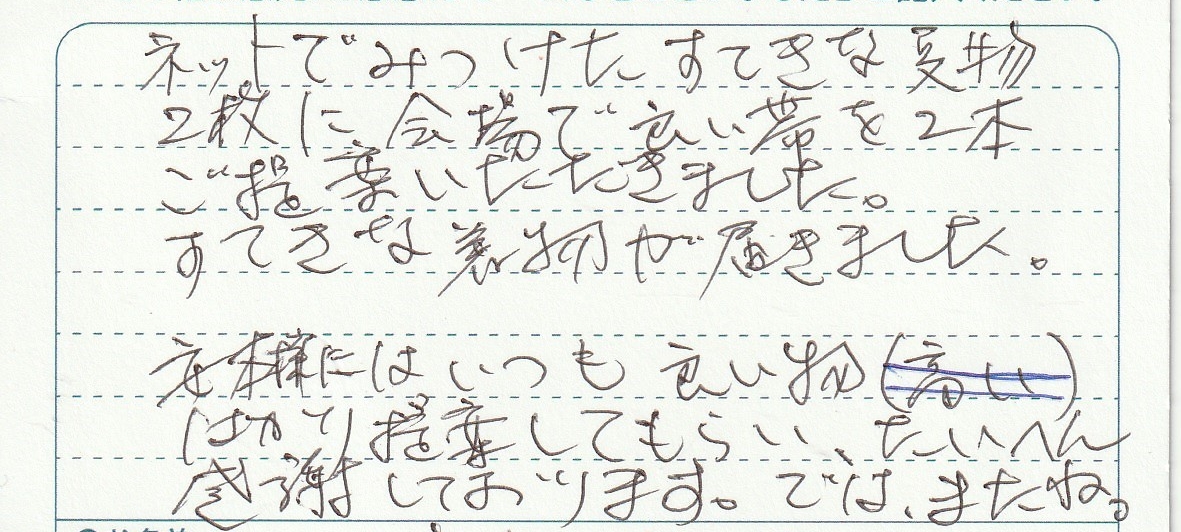 ネットでみつけたすてきな夏物
2枚に会場で良い帯を2本
ご提案いただきました。
すてきな着物が届きました。
本様にはいつも良い物(高い)
ばかり提案してもらい、たいへん
感謝しております。では、またね。